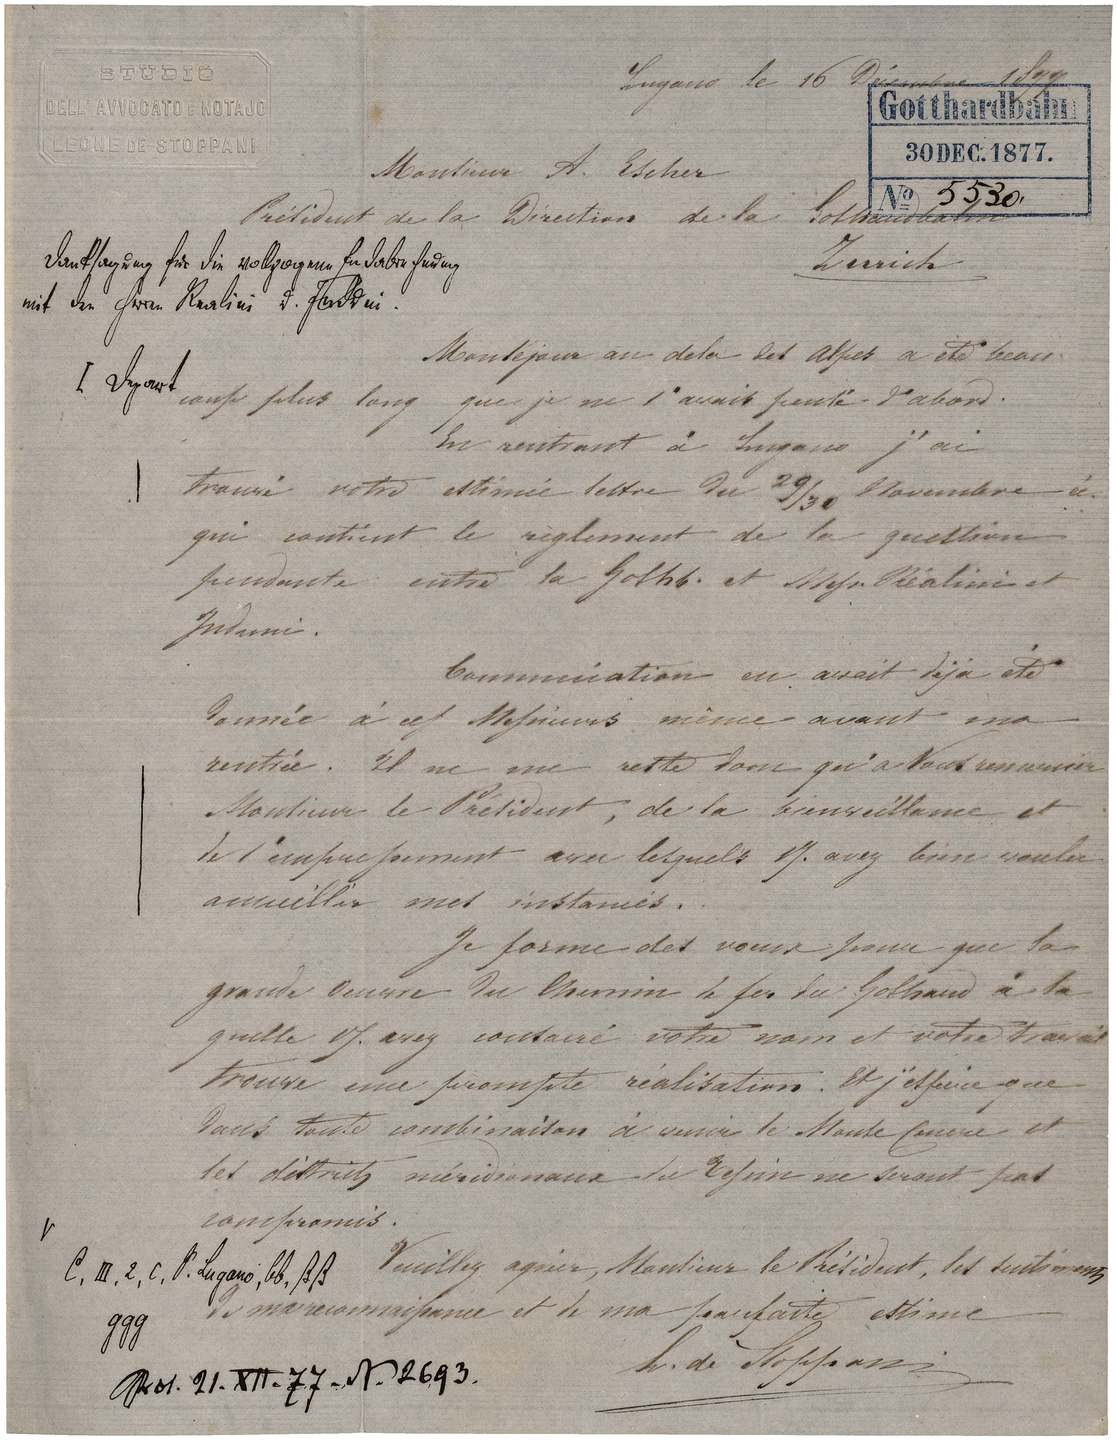 STUDIO
DELL'AVVOCATO E NOTAJO
LEONE DE STOPPANI
Lugano le 16 Décembre 1877
Gotthardbahn
30 DEC. 1877.
No 5530.
Monsieur A. Escher
Président de la Direction de la Gotthardbahn
Zurich
Danksagung für die vollzogene
mit den Herren Realini &
I Depart
Mon séjour au delà des Alpes a été beau-
coup plus long que je ne l'avais pensé d'abord.
En rentrant à Lugano j'ai
trouvé votre estimée lettre du 29/30 Novembre
qui contient le règlement de la question
pendante entre la Gotthb. et Messrs Réalini et
Induni.
Communication en avait déjà été
donnée à ces Messieurs même avant ma
rentrée. Il ne me reste donc qu'a Vous remercier
Monsieur le Président, de la bienveillance et
de l'empressement avec lesquels V. avez bien voulu
accueillir mes instances.
Je forme des voeux pour que la
grande Oeuvre du Chemin de fer du Gothard à la
quelle V. avez consacré votre nom et votre travail
trouve une prompte réalisation. Et j'espère que
dans toute combinaison à venir le Monte Cenere et
les districts méridionaux du Tessin ne seront pas
compromis.
Veuillez agréer, Monsieur le Président, les sentiments
de ma reconnaissance et de ma parfaite estime
L. de Stoppani
C, III, 2, c, P. Lugano, bb, ββ
ggg
Prot. 21. XII. 77 - N. 2693.